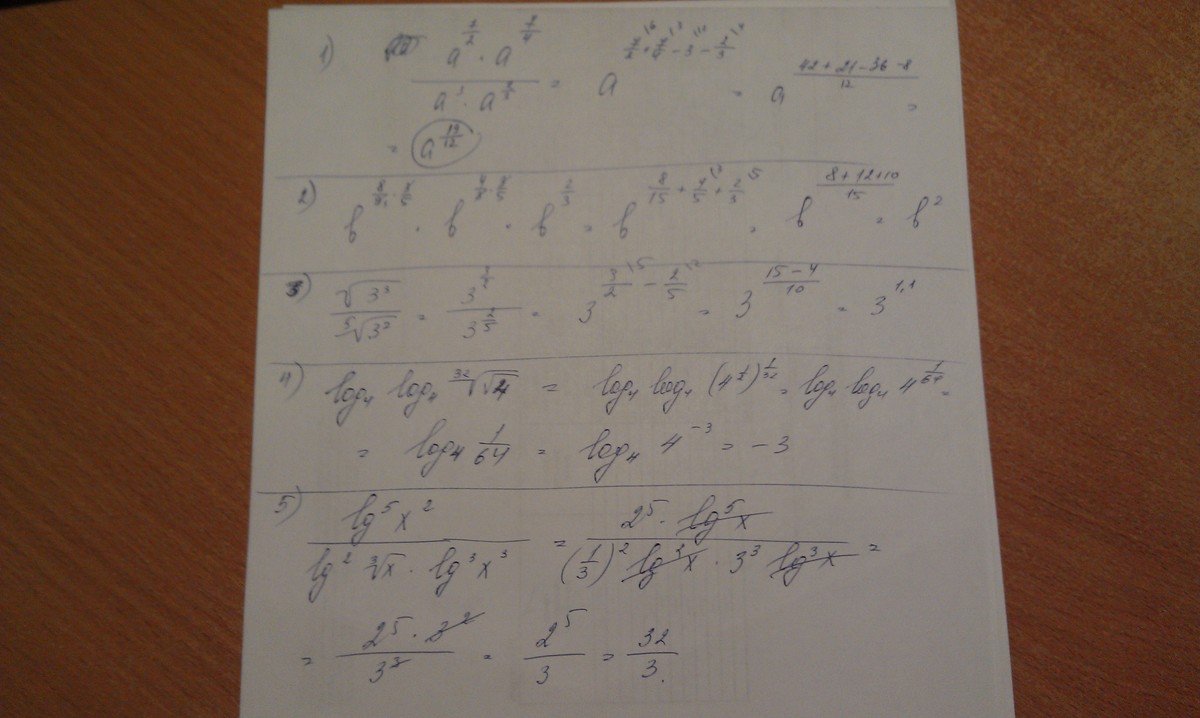 1) (a^(7/2) · a^(7/4)) / (a^3 · a^(2/3)) = a^(7/2 + 7/4 − 3 − 2/3) = a^((42 + 21 − 36 − 8)/12) =
= a^(19/12)
2) b · b · b^(2/3) = b^(8/15 + 4/5 + 2/3) = b^((8 + 12 + 10)/15) = b^2
3) √(3^3) / ⁵√(3^2) = 3^(3/2) / 3^(2/5) = 3^(3/2 − 2/5) = 3^((15 − 4)/10) = 3^(1,1)
4) log₄ log₄ ³²√(√4) = log₄ log₄ (4^(1/2))^(1/32) = log₄ log₄ 4^(1/64) =
= log₄ 1/64 = log₄ 4^(−3) = −3
5) lg⁵x² / (lg² ³√x · lg³x³) = (2⁵ · lg⁵x) / ((1/3)² lg²x · 3³ lg³x) =
= (2⁵ · 3²) / 3³ = 2⁵/3 = 32/3.